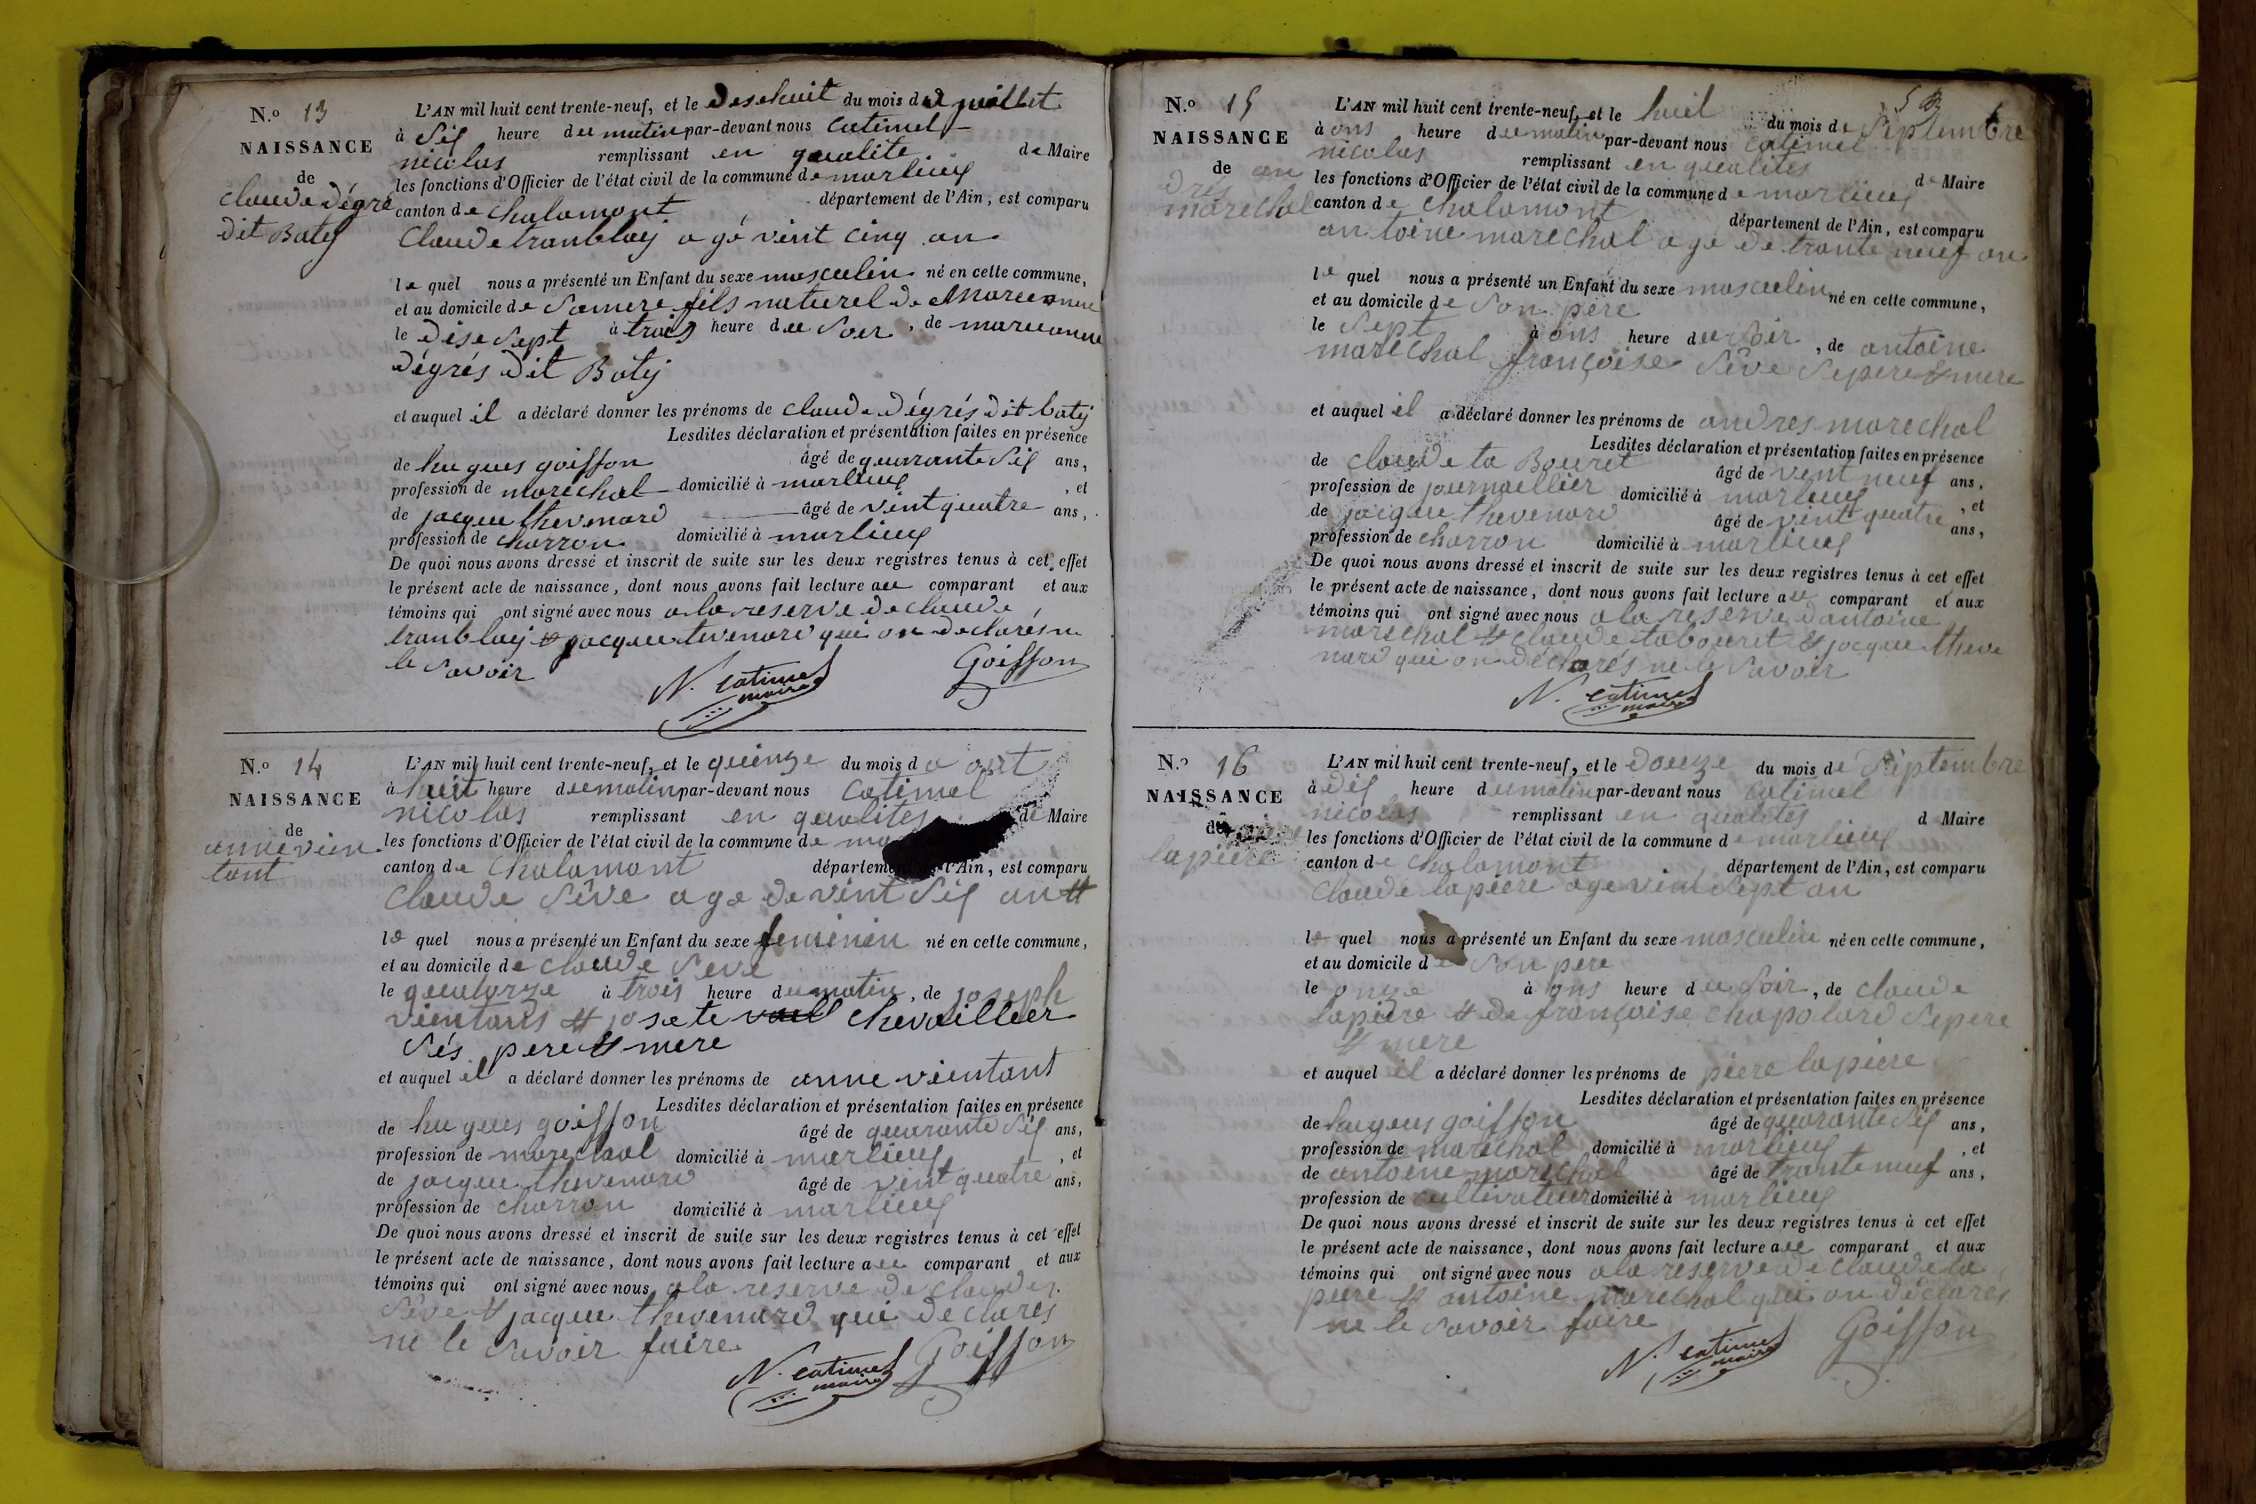 N.o 13
NAISSANCE
de
claude dégré
dit Baty
L'AN mil huit cent trente-neuf, et le desehuit du mois de juillet
à sis heure du matin par-devant nous catimel
nicolas remplissant en qualite de Maire
les fonctions d'Officier de l'état civil de la commune de marlieus
canton de chalamont département de l'Ain, est comparu
claude tranblay agé vint cinq an
le quel nous a présenté un Enfant du sexe masculin né en cette commune,
et au domicile de samere fils naturel de Marieanne
le dise sept à trois heure du soir, de marieanne
dégrés dit Baty
et auquel il a déclaré donner les prénoms de claude dégrés dit baty
Lesdites déclaration et présentation faites en présence
de hugues goiffon âgé de quarante sis ans,
profession de marechal domicilié à marlieus, et
de jacque thevenard âgé de vint quatre ans,
profession de charron domicilié à marlieus
De quoi nous avons dressé et inscrit de suite sur les deux registres tenus à cet effet
le présent acte de naissance, dont nous avons fait lecture au comparant et aux
témoins qui ont signé avec nous a la reserve de claude
tranblay & jacque tevenard qui on declarés ne
le savoir
N. catimel maire
Goiffon
N.o 14
NAISSANCE
de
anne vien
tant
L'AN mil huit cent trente-neuf, et le quinze du mois d a out
à huit heure du matin par-devant nous catimel
nicolas remplissant en qualités de Maire
les fonctions d'Officier de l'état civil de la commune de
canton de chalamont département de l'Ain, est comparu
claude sêve age de vint sis an &
le quel nous a présenté un Enfant du sexe feminien né en cette commune,
et au domicile de claude seve
le quatorze à trois heure du matin, de joseph
vientans & josete chevaillier
sés pere & mere
et auquel il a déclaré donner les prénoms de anne vientant
Lesdites déclaration et présentation faites en présence
de hugues goiffon âgé de quarante sis ans,
profession de marechal domicilié à marlieus, et
de jacque thevenard âgé de vint quatre ans,
profession de charron domicilié à marlieus
De quoi nous avons dressé et inscrit de suite sur les deux registres tenus à cet effet
le présent acte de naissance, dont nous avons fait lecture au comparant et aux
témoins qui ont signé avec nous a la reserve de claude
sêve & jacque thevenard qui declarés
ne le savoir faire
N. catimel maire
Goiffon
N.o 15
NAISSANCE
de an
drés
marechal
L'AN mil huit cent trente-neuf, et le huit du mois de septembre
à ons heure du matin par-devant nous catimel
nicolas remplissant en qualites de Maire
les fonctions d'Officier de l'état civil de la commune de marlieus
canton de chalamont département de l'Ain, est comparu
antoine marechal age de trante neuf an
le quel nous a présenté un Enfant du sexe masculin né en cette commune,
et au domicile de son pere
le sept à ons heure du soir, de antoine
marechal françoise sêve sepere & mere
et auquel il a déclaré donner les prénoms de andres marechal
Lesdites déclaration et présentation faites en présence
de claude ta Bouret âgé de vent neuf ans,
profession de journaillier domicilié à marlieus, et
de jacque thevenard âgé de vint quatre ans,
profession de charron domicilié à marlieus
De quoi nous avons dressé et inscrit de suite sur les deux registres tenus à cet effet
le présent acte de naissance, dont nous avons fait lecture au comparant et aux
témoins qui ont signé avec nous a la reserve dantoine
marechal & claude tabouret & jacque theve
nard qui on déclarés ne le savoir
N. catimel maire
N.o 16
NAISSANCE
de
lapiere
L'AN mil huit cent trente-neuf, et le douze du mois de septembre
à dis heure du matin par-devant nous catimel
nicolas remplissant en qualités d Maire
les fonctions d'Officier de l'état civil de la commune de marlieus
canton de chalamont département de l'Ain, est comparu
claude lapiere age vint sept an
le quel nous a présenté un Enfant du sexe masculin né en cette commune,
et au domicile de son pere
le onze à ons heure du soir, de claude
lapiere & de françoise chapolard sepere
& mere
et auquel il a déclaré donner les prénoms de piere lapiere
Lesdites déclaration et présentation faites en présence
de hugues goiffon âgé de quarante sis ans,
profession de marechal domicilié à marlieus, et
de antoine marechal âgé de trante neuf ans,
profession de cultivateur domicilié à marlieus
De quoi nous avons dressé et inscrit de suite sur les deux registres tenus à cet effet
le présent acte de naissance, dont nous avons fait lecture au comparant et aux
témoins qui ont signé avec nous a la reserve de claude la
piere & antoine marechal qui on déclarés
ne le savoir faire
N. catimel maire
Goiffon